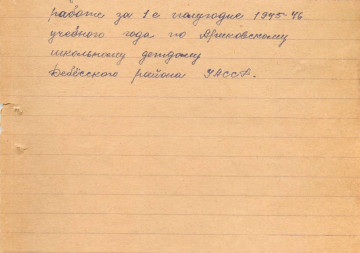 работе за 1 е полугодие 1945-46
учебного года по Ариковскому
школьному детдому
Дебёсского района УАССР.